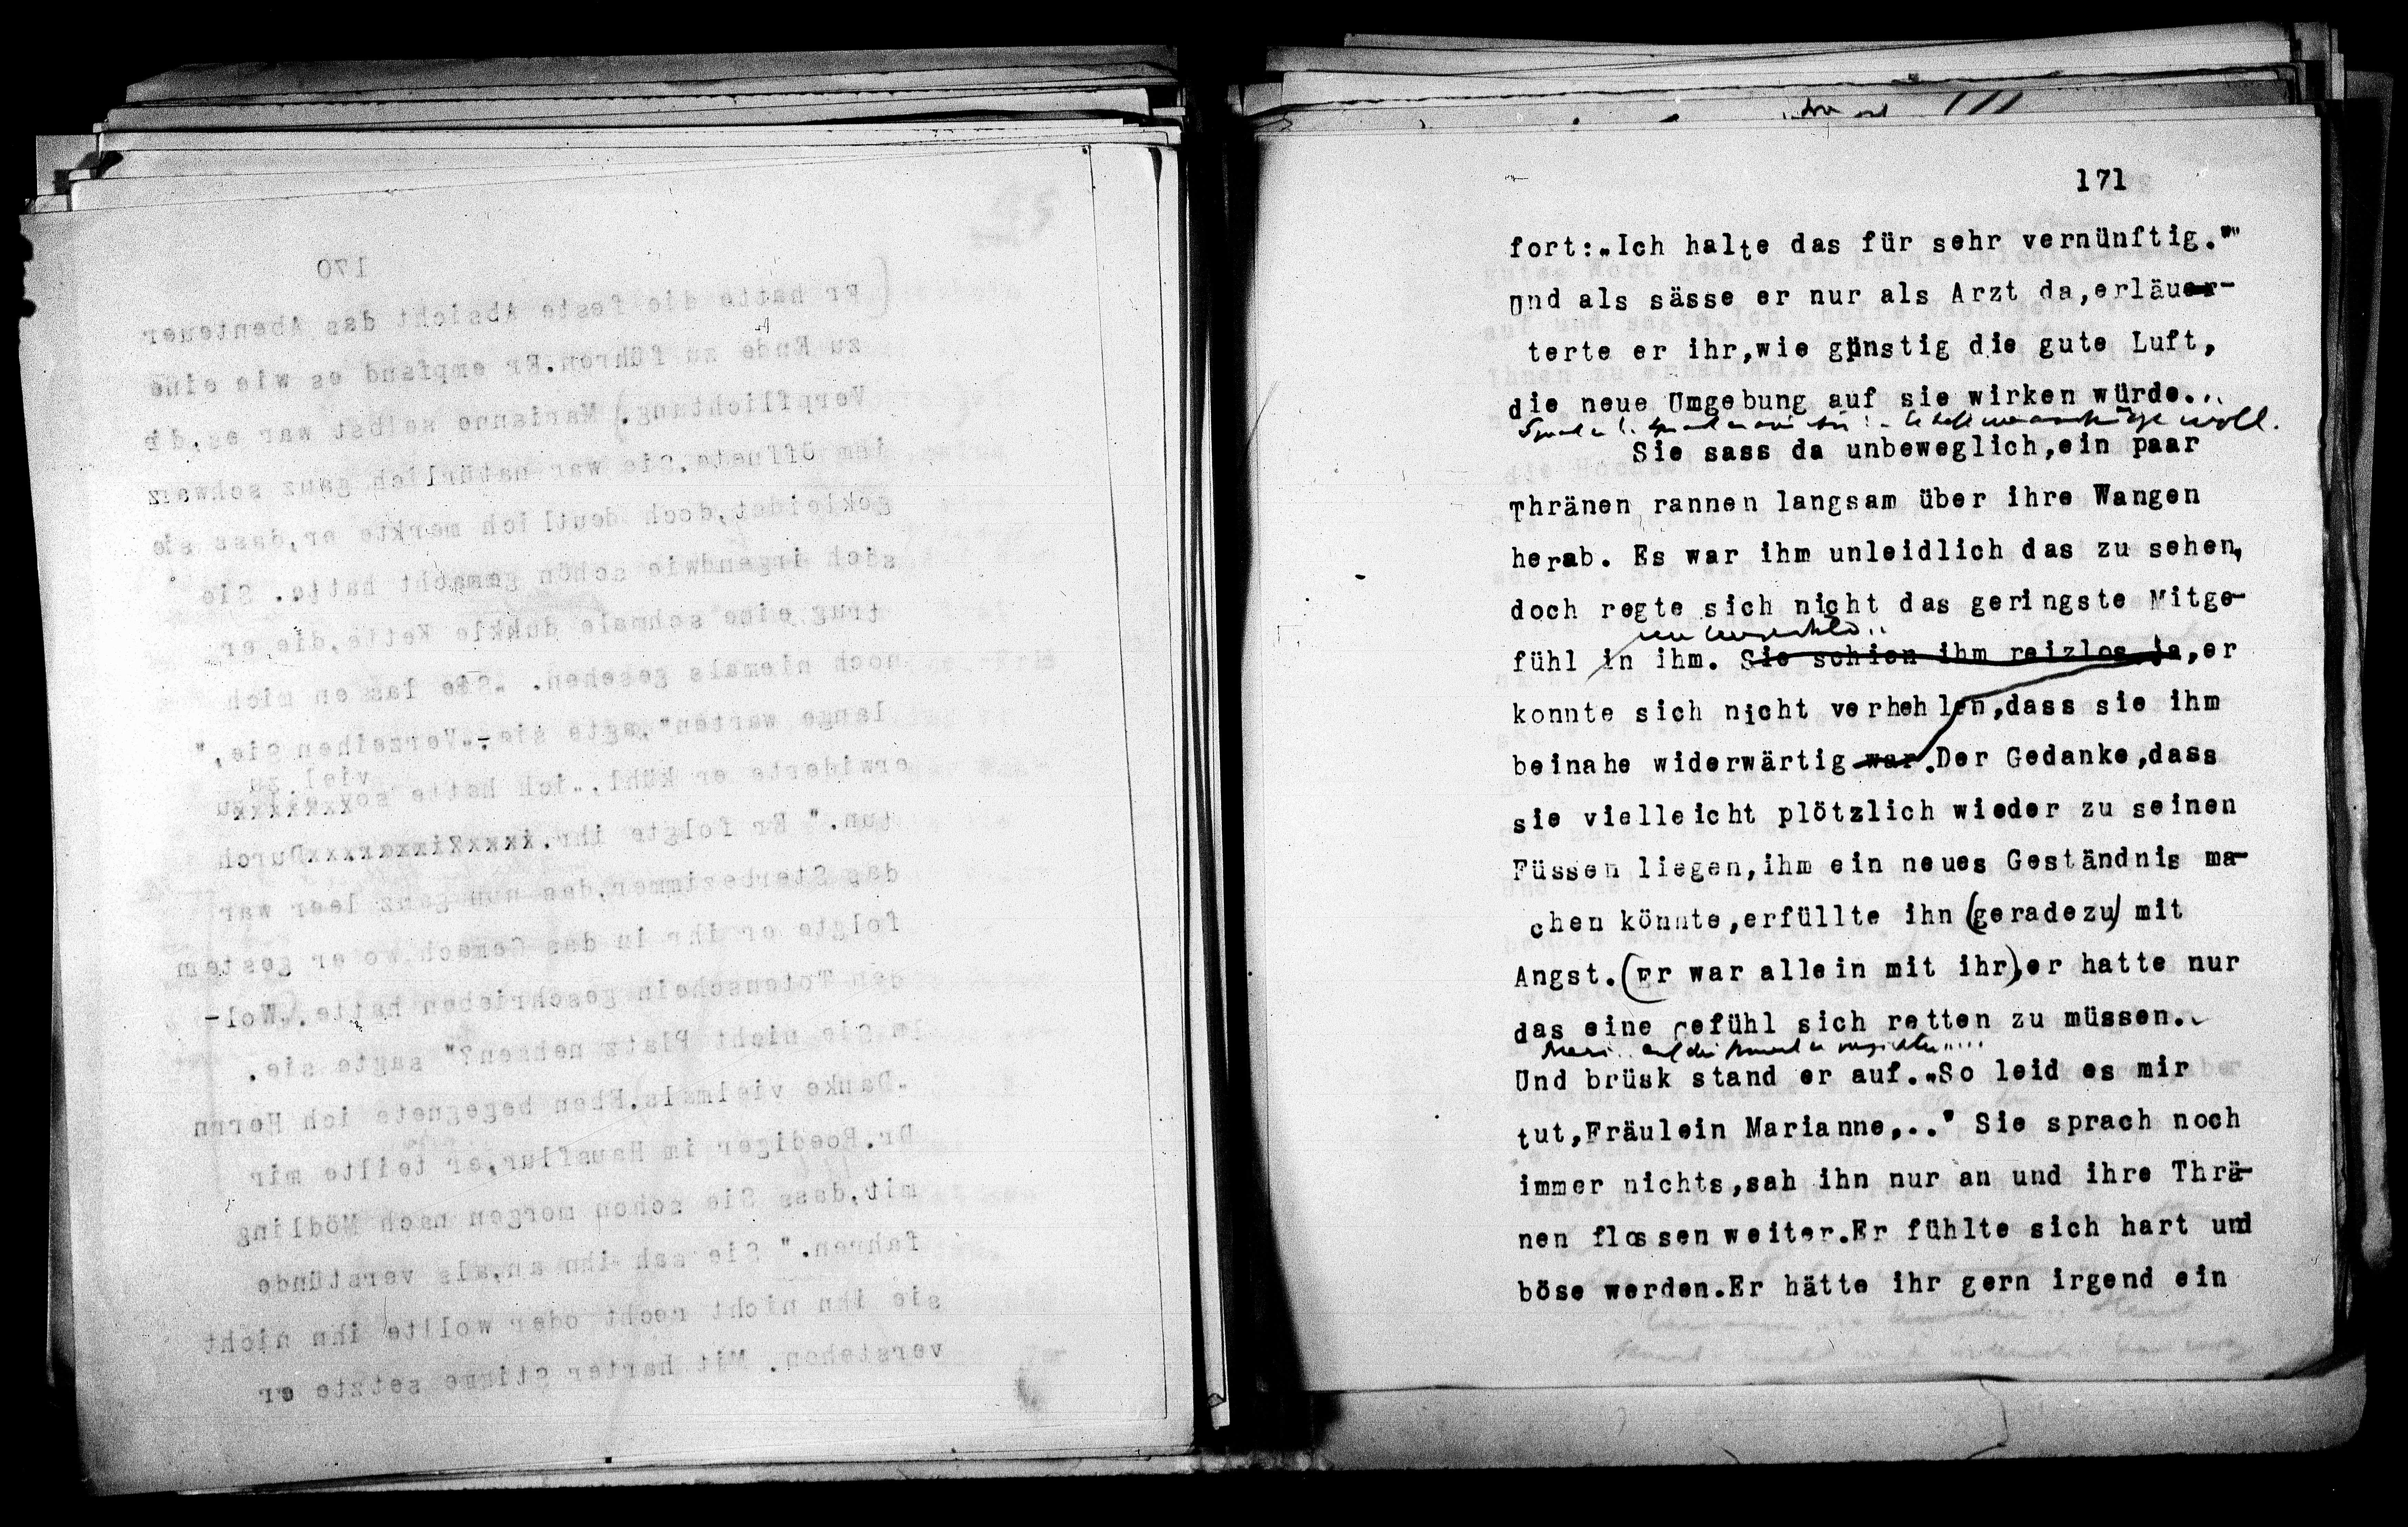 170
(Er hatte die feste Absicht das Abenteuer
zu Ende zu führen.Er empfand es wie eine
Verpflichtung.) Marianne selbst war es,die
ihm öffnete.Sie war natürlich ganz schwarz
gekleidet,doch deutlich merkte er,dass sie
sich irgendwie schön gemacht hatte. Sie
trug eine schmale dunkle Kette,die er
noch niemals gesehen. „Sie lassen mich
lange warten",sagte sie.-„Verzeihen Sie,"
viel zu
erwiderte er kühl,„ich hatte so
tun." Er folgte ihr. Durch
das Sterbezimmer,das nun ganz leer war
folgte er ihr in das Gemach,wo er gestern
den Totenschein geschrieben hatte.„Wol-
len Sie nicht Platz nehmen?" sagte sie.
„Danke vielmals.Eben begegnete ich Herrn
Dr.Roediger im Hausflur,er teilte mir
mit,dass Sie schon morgen nach Mödling
fahren." Sie sah ihn an,als verstünde
sie ihn nicht recht oder wollte ihn nicht
verstehen. Mit harter Stimme setzte er
171
fort:„Ich halte das für sehr vernünftig."
Und als sässe er nur als Arzt da,erläuer-
terte er ihr,wie günstig die gute Luft,
die neue Umgebung auf sie wirken würde...
Sie sass da unbeweglich,ein paar
Thränen rannen langsam über ihre Wangen
herab. Es war ihm unleidlich das zu sehen,
doch regte sich nicht das geringste Mitge-
fühl in ihm. Sie schien ihm reizlos ja,er
konnte sich nicht verhehlen,dass sie ihm
beinahe widerwärtig war.Der Gedanke,dass
sie vielleicht plötzlich wieder zu seinen
Füssen liegen,ihm ein neues Geständnis ma-
chen könnte,erfüllte ihn (geradezu) mit
Angst.(Er war allein mit ihr),er hatte nur
das eine Gefühl sich retten zu müssen.
Und brüsk stand er auf.„So leid es mir
tut,Fräulein Marianne,.." Sie sprach noch
immer nichts,sah ihn nur an und ihre Thrä-
nen flossen weiter.Er fühlte sich hart und
böse werden.Er hätte ihr gern irgend ein